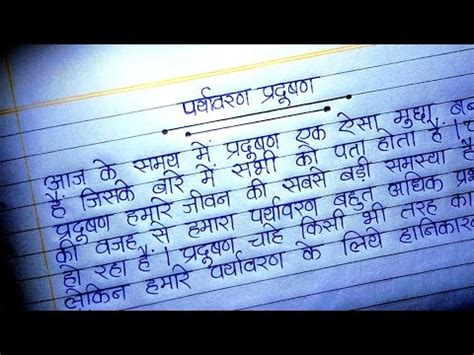 पर्यावरण प्रदूषण
आज के समय में प्रदूषण एक ऐसा मुद्दा
है जिसके बारे में सभी को पता होता है।
प्रदूषण हमारे जीवन की सबसे बड़ी समस्या
की वजह से हमारा पर्यावरण बहुत अधिक
हो रहा है। प्रदूषण चाहे किसी भी तरह का
लेकिन हमारे पर्यावरण के लिये हानिकारक